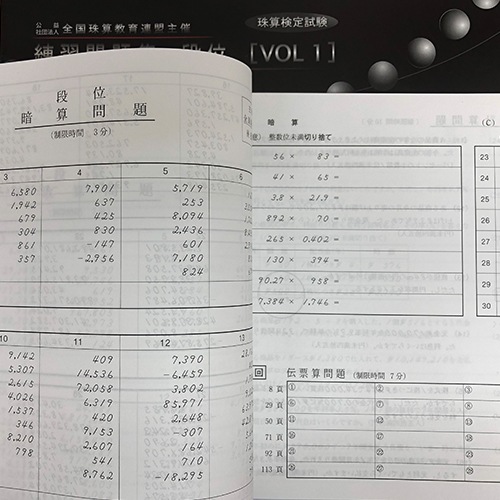 公益
社団法人 全国珠算教育連盟主催
珠算検定試験
[VOL 1]
段位
暗算問題
(制限時間 3分)
3 4 5
6,580 7,901 5,719
1,942 637 253
679 425 8,094
304 830 2,436
861 -147 601
357 -2,956 7,180
824
10 11 12
9,142 409 7,390
5,307 14,536 -6,459
2,615 72,058 3,802
4,026 6,319 85,971
1,537 420 2,648
346 9,153 -307
8,210 2,607 164
798 541 710
8,762 -18,295
暗算
(C)
整数位未満切り捨て
56 × 83 =
41 × 65 =
3.8 × 21.9 =
892 × 70 =
265 × 0.402 =
130 × 394 =
90.27 × 958 =
7,384 × 1,746 =
23
24
25
26
27
28
29
30
回 伝票算問題 (制限時間 7分)
8頁 ① ② ③
29頁
50頁
71頁
92頁
113頁